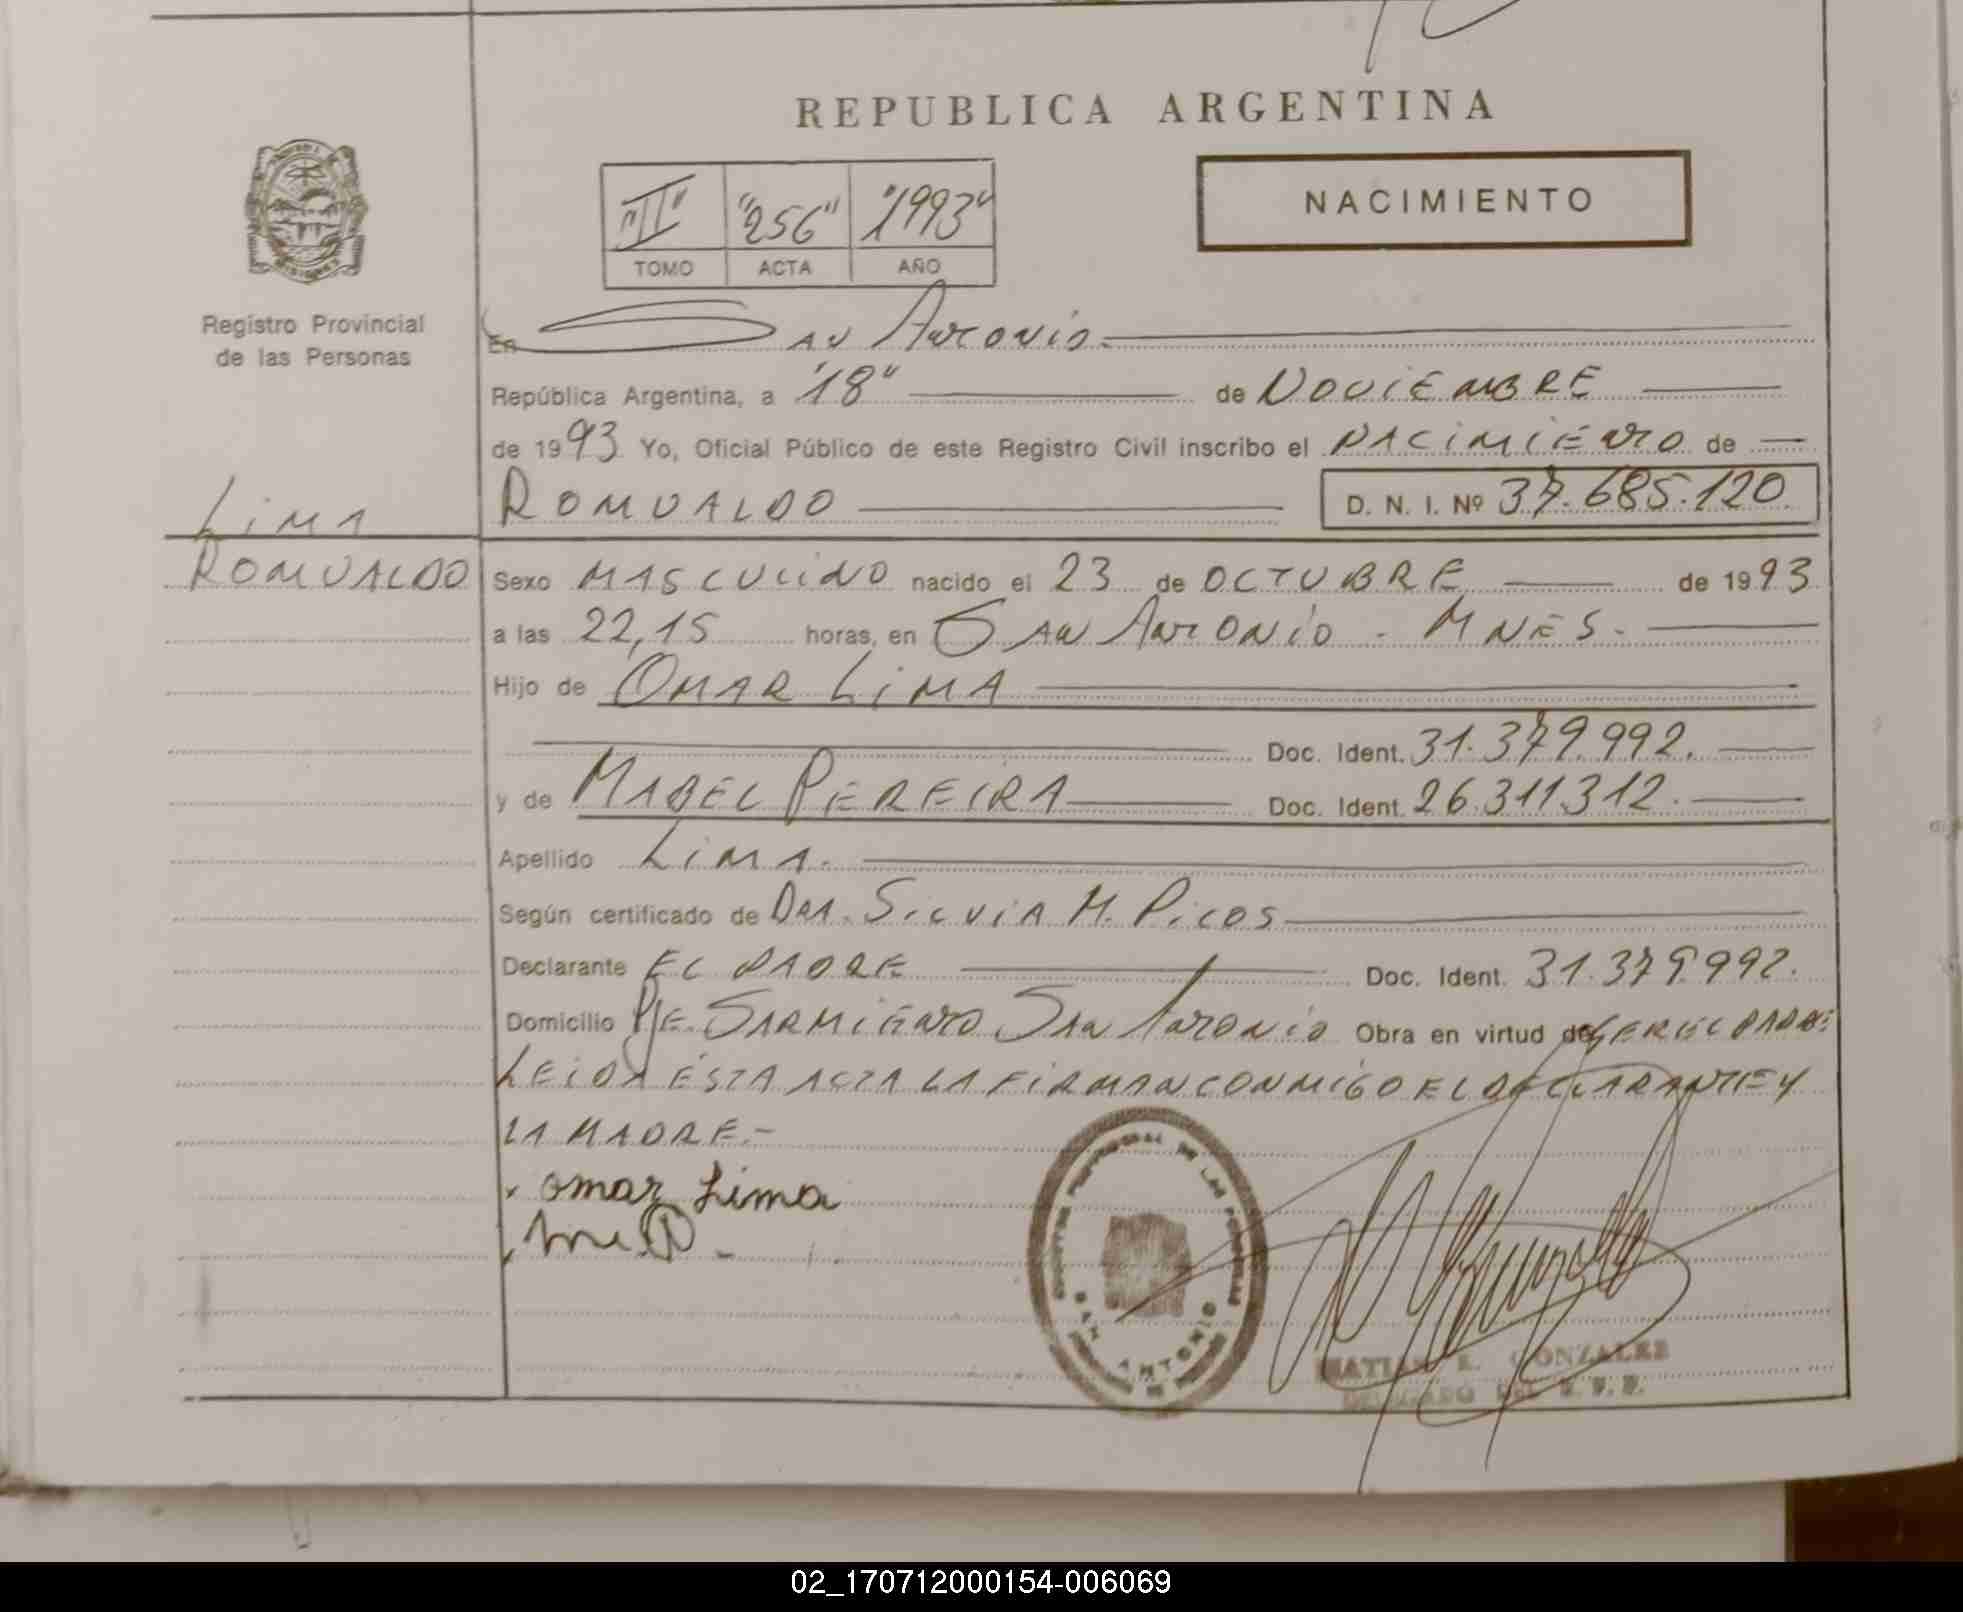 REPUBLICA ARGENTINA
"II" "256" "1993"
TOMO ACTA AÑO
NACIMIENTO
Registro Provincial
de las Personas
En San Antonio.
República Argentina, a "18" de NOVIEMBRE
de 1993 Yo, Oficial Público de este Registro Civil inscribo el NACIMIENTO de
ROMUALDO D. N. I. Nº 37.685.120.
LIMA
ROMUALDO
Sexo MASCULINO nacido el 23 de OCTUBRE de 1993
a las 22,15 horas, en SAN ANTONIO - MNES.
Hijo de OMAR LIMA
Doc. Ident. 31.379.992.
y de MABEL PEREIRA Doc. Ident. 26.311.312.
Apellido LIMA.
Según certificado de DRA. SILVIA M. PICOS
Declarante EL PADRE Doc. Ident. 31.379.992.
Domicilio PJE. SARMIENTO SAN ANTONIO Obra en virtud de SER EL PADRE
LEIDA ESTA ACTA LA FIRMAN CONMIGO EL DECLARANTE Y
LA MADRE.-
x omar Lima
SAN ANTONIO
GONZALEZ
02_170712000154-006069